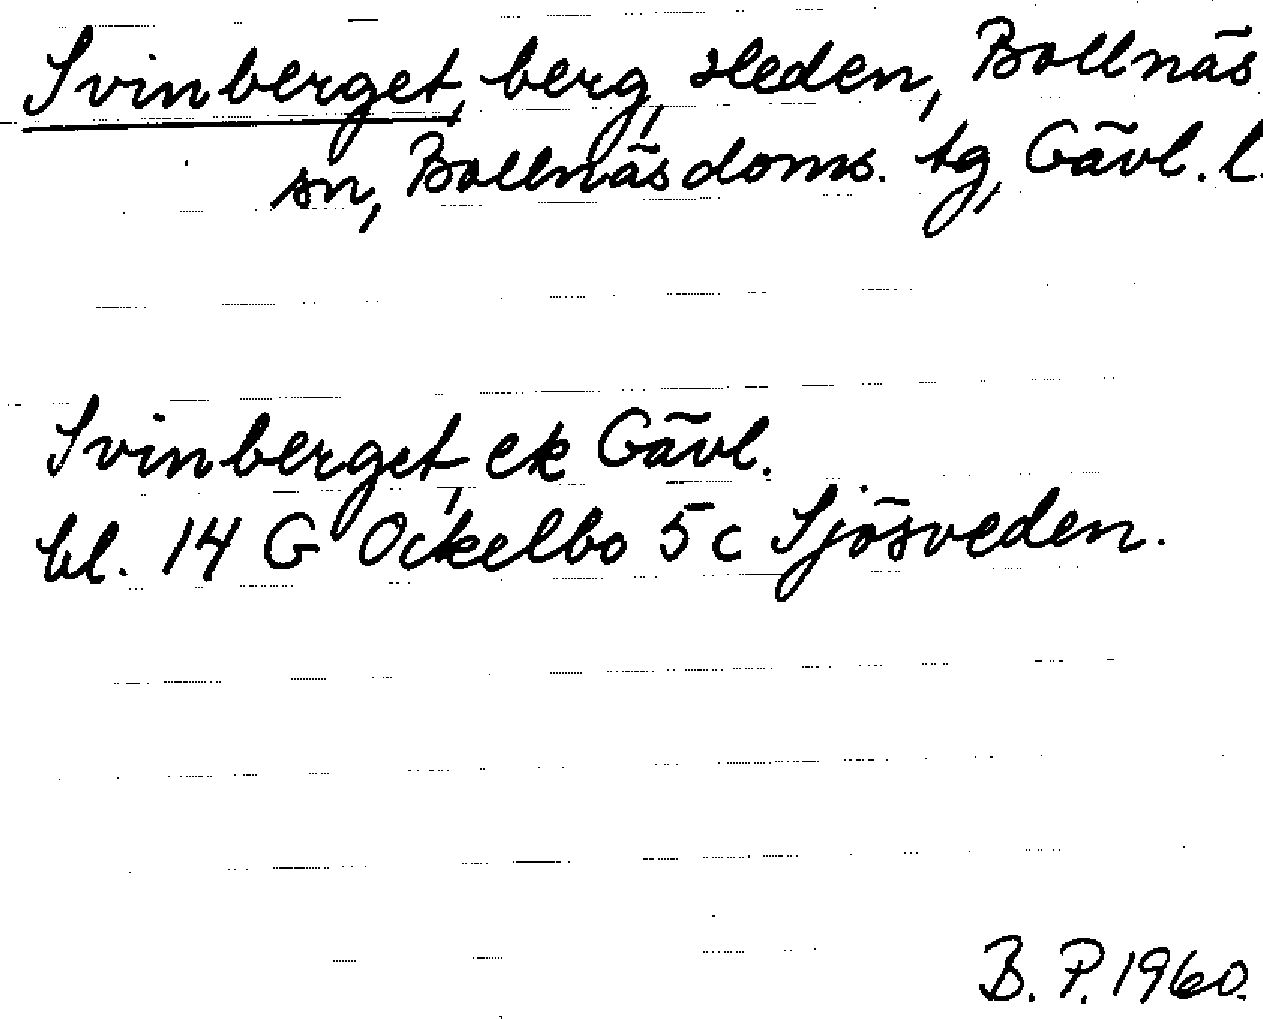 Svinberget, berg, Heden, Bollnäs
sn, Bollnäsdoms. tg, Gävl. l.
Svinberget, ek Gävl.
bl. 14 G Ockelbo 5 c Sjösveden.
B. P. 1960.